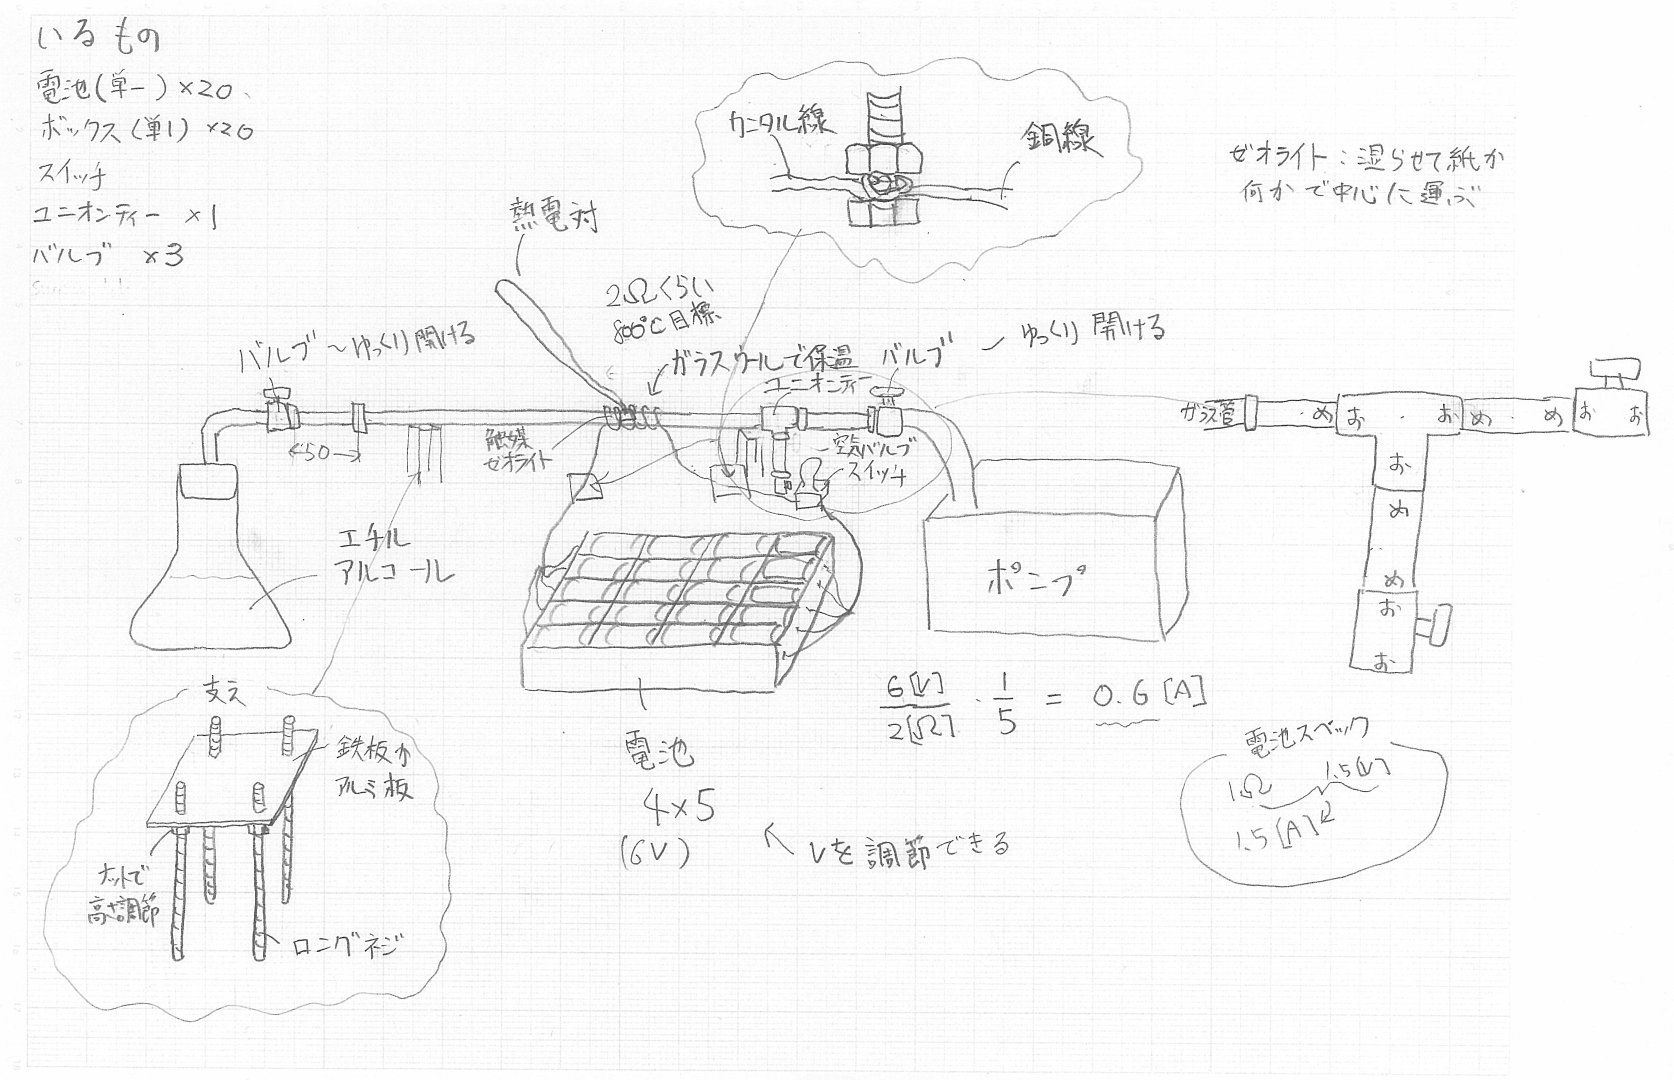 いるもの
電池(単一)×20、
ボックス(単1)×20
スイッチ
ユニオンティー ×1
バルブ ×3
カンタル線
銅線
ゼオライト:湿らせて紙か
何かで中心に運ぶ
熱電対
2Ωくらい
800℃目標
バルブ〜ゆっくり開ける
ガラスウールで保温
ユニオンティー
バルブ 〜 ゆっくり開ける
50
触媒
ゼオライト
空気バルブ
スイッチ
ガラス管
め お お め め お お
お
め
め
お
お
エチル
アルコール
ポンプ
6[V]/2[Ω]・1/5 = 0.6[A]
電池
4×5
(6V)
Vを調節できる
電池スペック
1Ω 1.5[V]
1.5[A]
支え
鉄板か
アルミ板
ナットで
高さ調節
ロングネジ